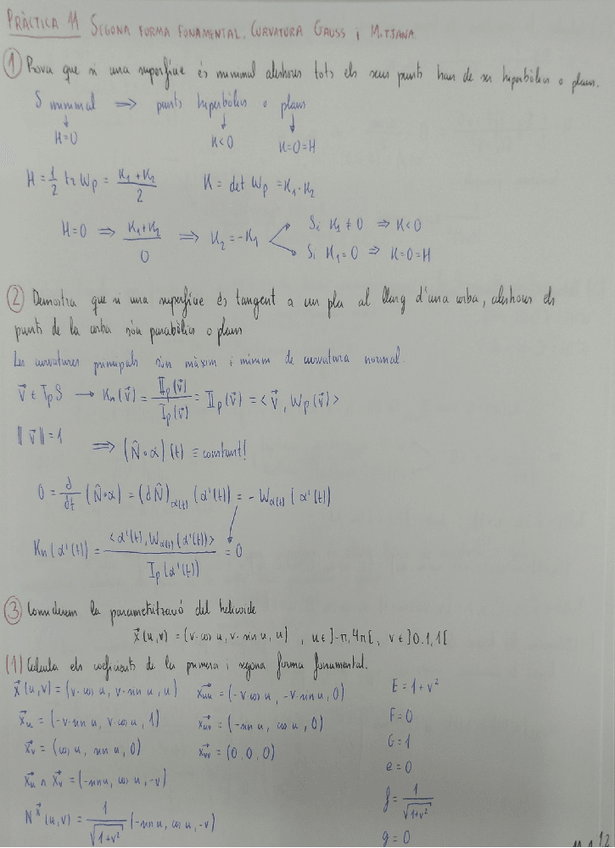 PRÀCTICA 11 SEGONA FORMA FONAMENTAL, CURVATURA GAUSS i MITJANA.
① Prova que si una superfície és minimal aleshores tots els seus punts han de ser hiperbòlics o plans.
S minimal ⟹ punts hiperbòlics o plans
↓ ↓ ↓
H=0 K<0 K=0=H
H = 1/2 tr Wp = (K₁+K₂)/2 K = det Wp = K₁·K₂
H=0 ⟹ (K₁+K₂)/0 ⟹ K₂=-K₁ Si K₁≠0 ⟹ K<0
Si K₁=0 ⟹ K=0=H
② Demostra que si una superfície és tangent a un pla al llarg d'una corba, aleshores els
punts de la corba són parabòlics o plans
Les curvatures principals són màxim i mínim de curvatura normal.
v⃗ ∈ TpS → Kn(v⃗) = IIp(v⃗)/Ip(v⃗) = IIp(v⃗) = <v⃗, Wp(v⃗)>
‖v⃗‖=1 ⟹ (N⃗∘α)(t) ≡ constant!
0 = d/dt (N⃗∘α) = (dN⃗)α(t) (α'(t)) = -Wα(t) (α'(t))
Kn(α'(t)) = <α'(t), Wα(t)(α'(t))>/Ip(α'(t)) = 0
③ Considerem la parametrització del helicoide
x⃗(u,v) = (v·cos u, v·sin u, u), u∈]-π,4π[, v∈]0.1,1[
(1) Calcula els coeficients de la primera i segona forma fonamental.
x⃗(u,v) = (v·cos u, v·sin u, u) x⃗uu = (-v·cos u, -v·sin u, 0) E = 1+v²
x⃗u = (-v·sin u, v·cos u, 1) x⃗uv = (-sin u, cos u, 0) F=0
x⃗v = (cos u, sin u, 0) x⃗vv = (0,0,0) G=1
x⃗u ∧ x⃗v = (-sin u, cos u, -v) e=0
N^x⃗(u,v) = 1/√(1+v²) (-sin u, cos u, -v) f = 1/√(1+v²)
g=0